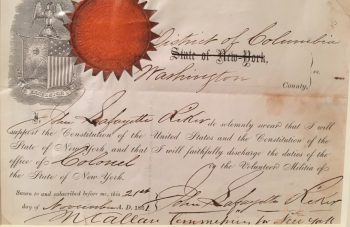 District of Columbia
State of New-York,
Washington County,
ss
I John Lafayette Riker do solemnly swear that I will
support the Constitution of the United States and the Constitution of the
State of New-York, and that I will faithfully discharge the duties of the
office of Colonel in the Volunteer Militia of
the State of New York.
Sworn to and subscribed before me, this 21st
day of November A. D. 1861
John Lafayette Riker
Commissioner for New York